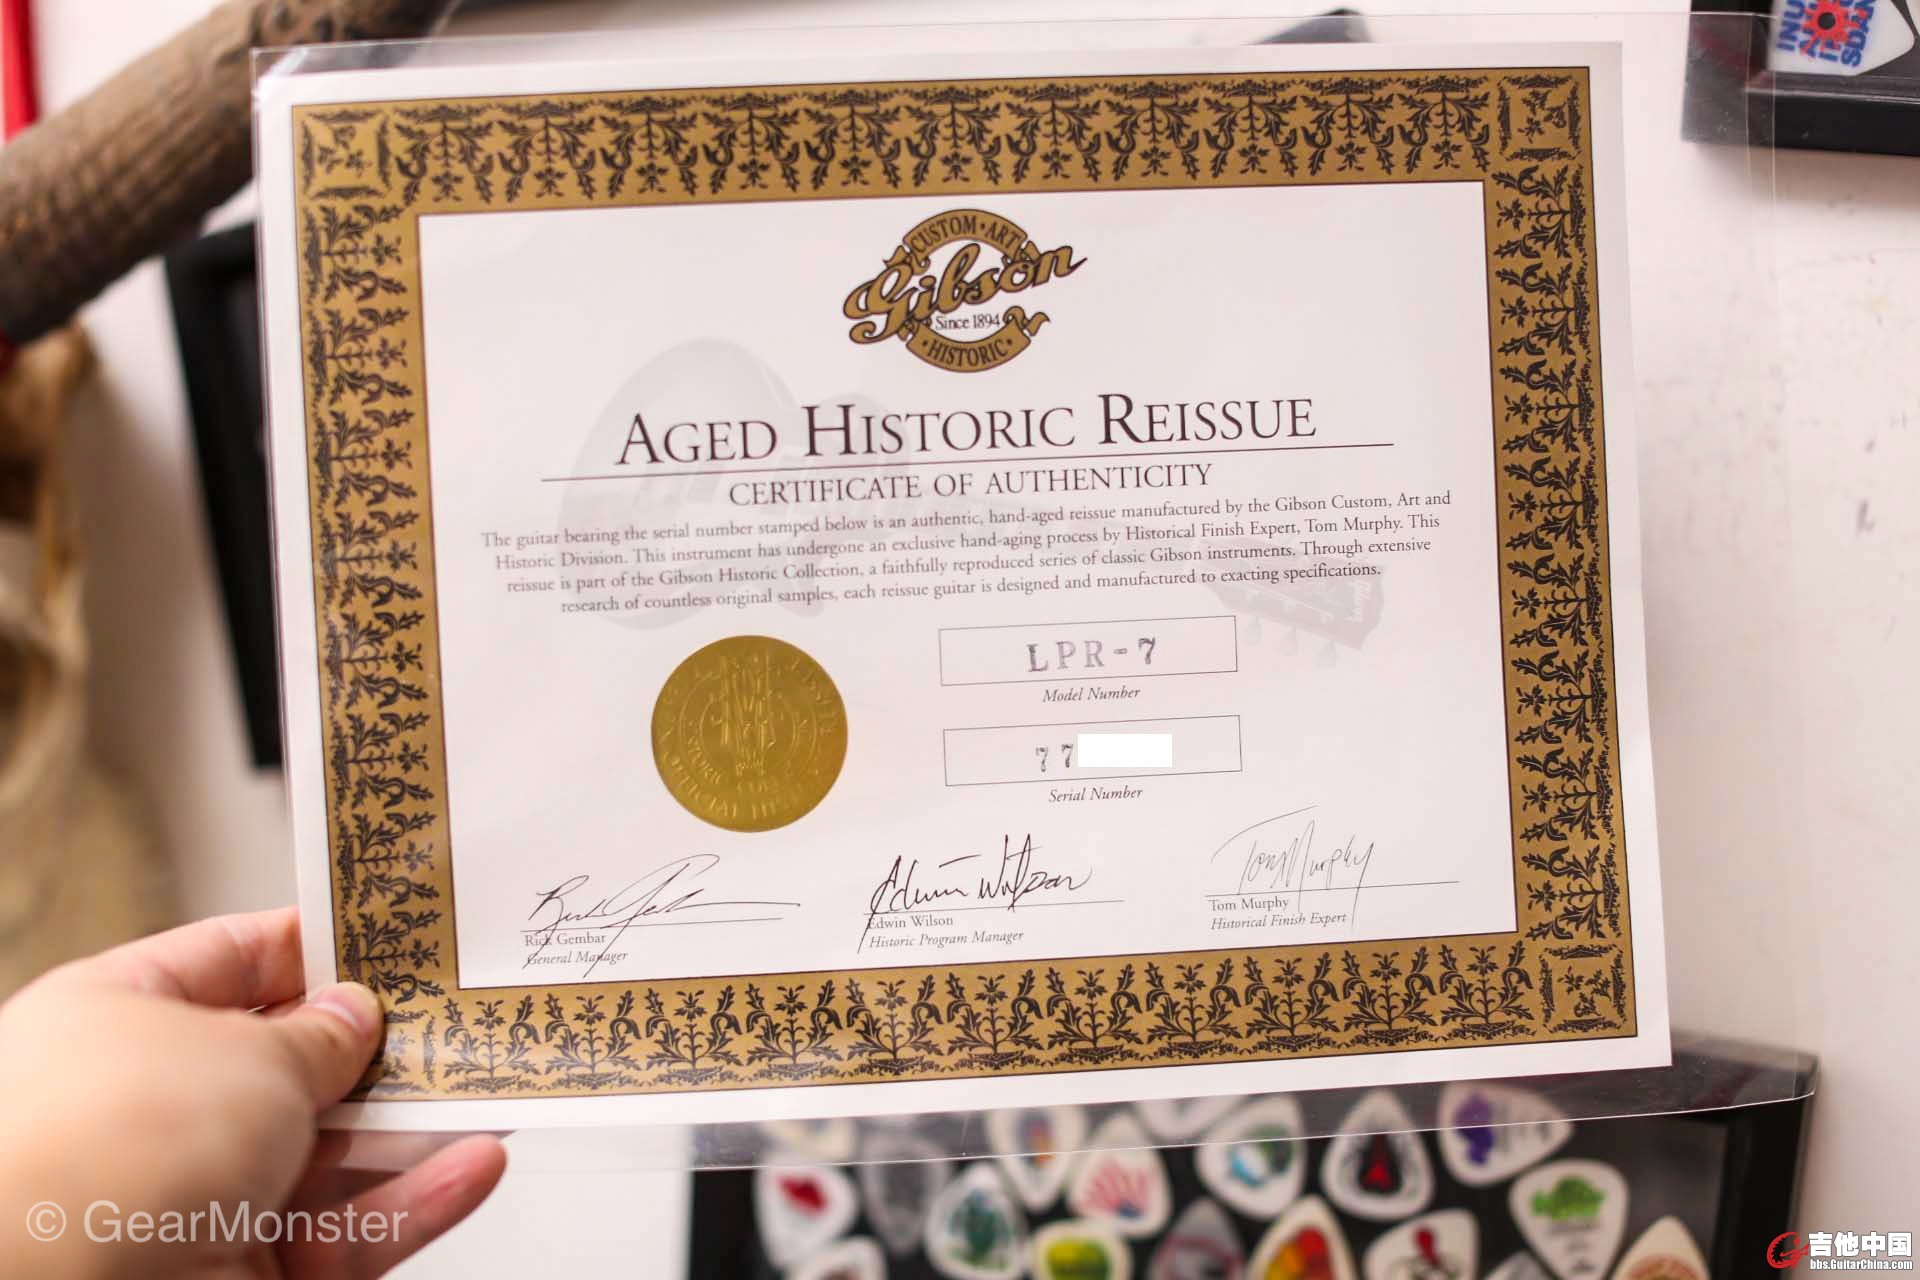 CUSTOM · ART
Gibson
Since 1894
· HISTORIC ·
AGED HISTORIC REISSUE
CERTIFICATE OF AUTHENTICITY
The guitar bearing the serial number stamped below is an authentic, hand-aged reissue manufactured by the Gibson Custom, Art and
Historic Division. This instrument has undergone an exclusive hand-aging process by Historical Finish Expert, Tom Murphy. This
reissue is part of the Gibson Historic Collection, a faithfully reproduced series of classic Gibson instruments. Through extensive
research of countless original samples, each reissue guitar is designed and manufactured to exacting specifications.
LPR-7
Model Number
77
Serial Number
Edwin Wilson
Tom Murphy
Rick Gembar
General Manager
Edwin Wilson
Historic Program Manager
Tom Murphy
Historical Finish Expert
© GearMonster
吉他中国
bbs.GuitarChina.com